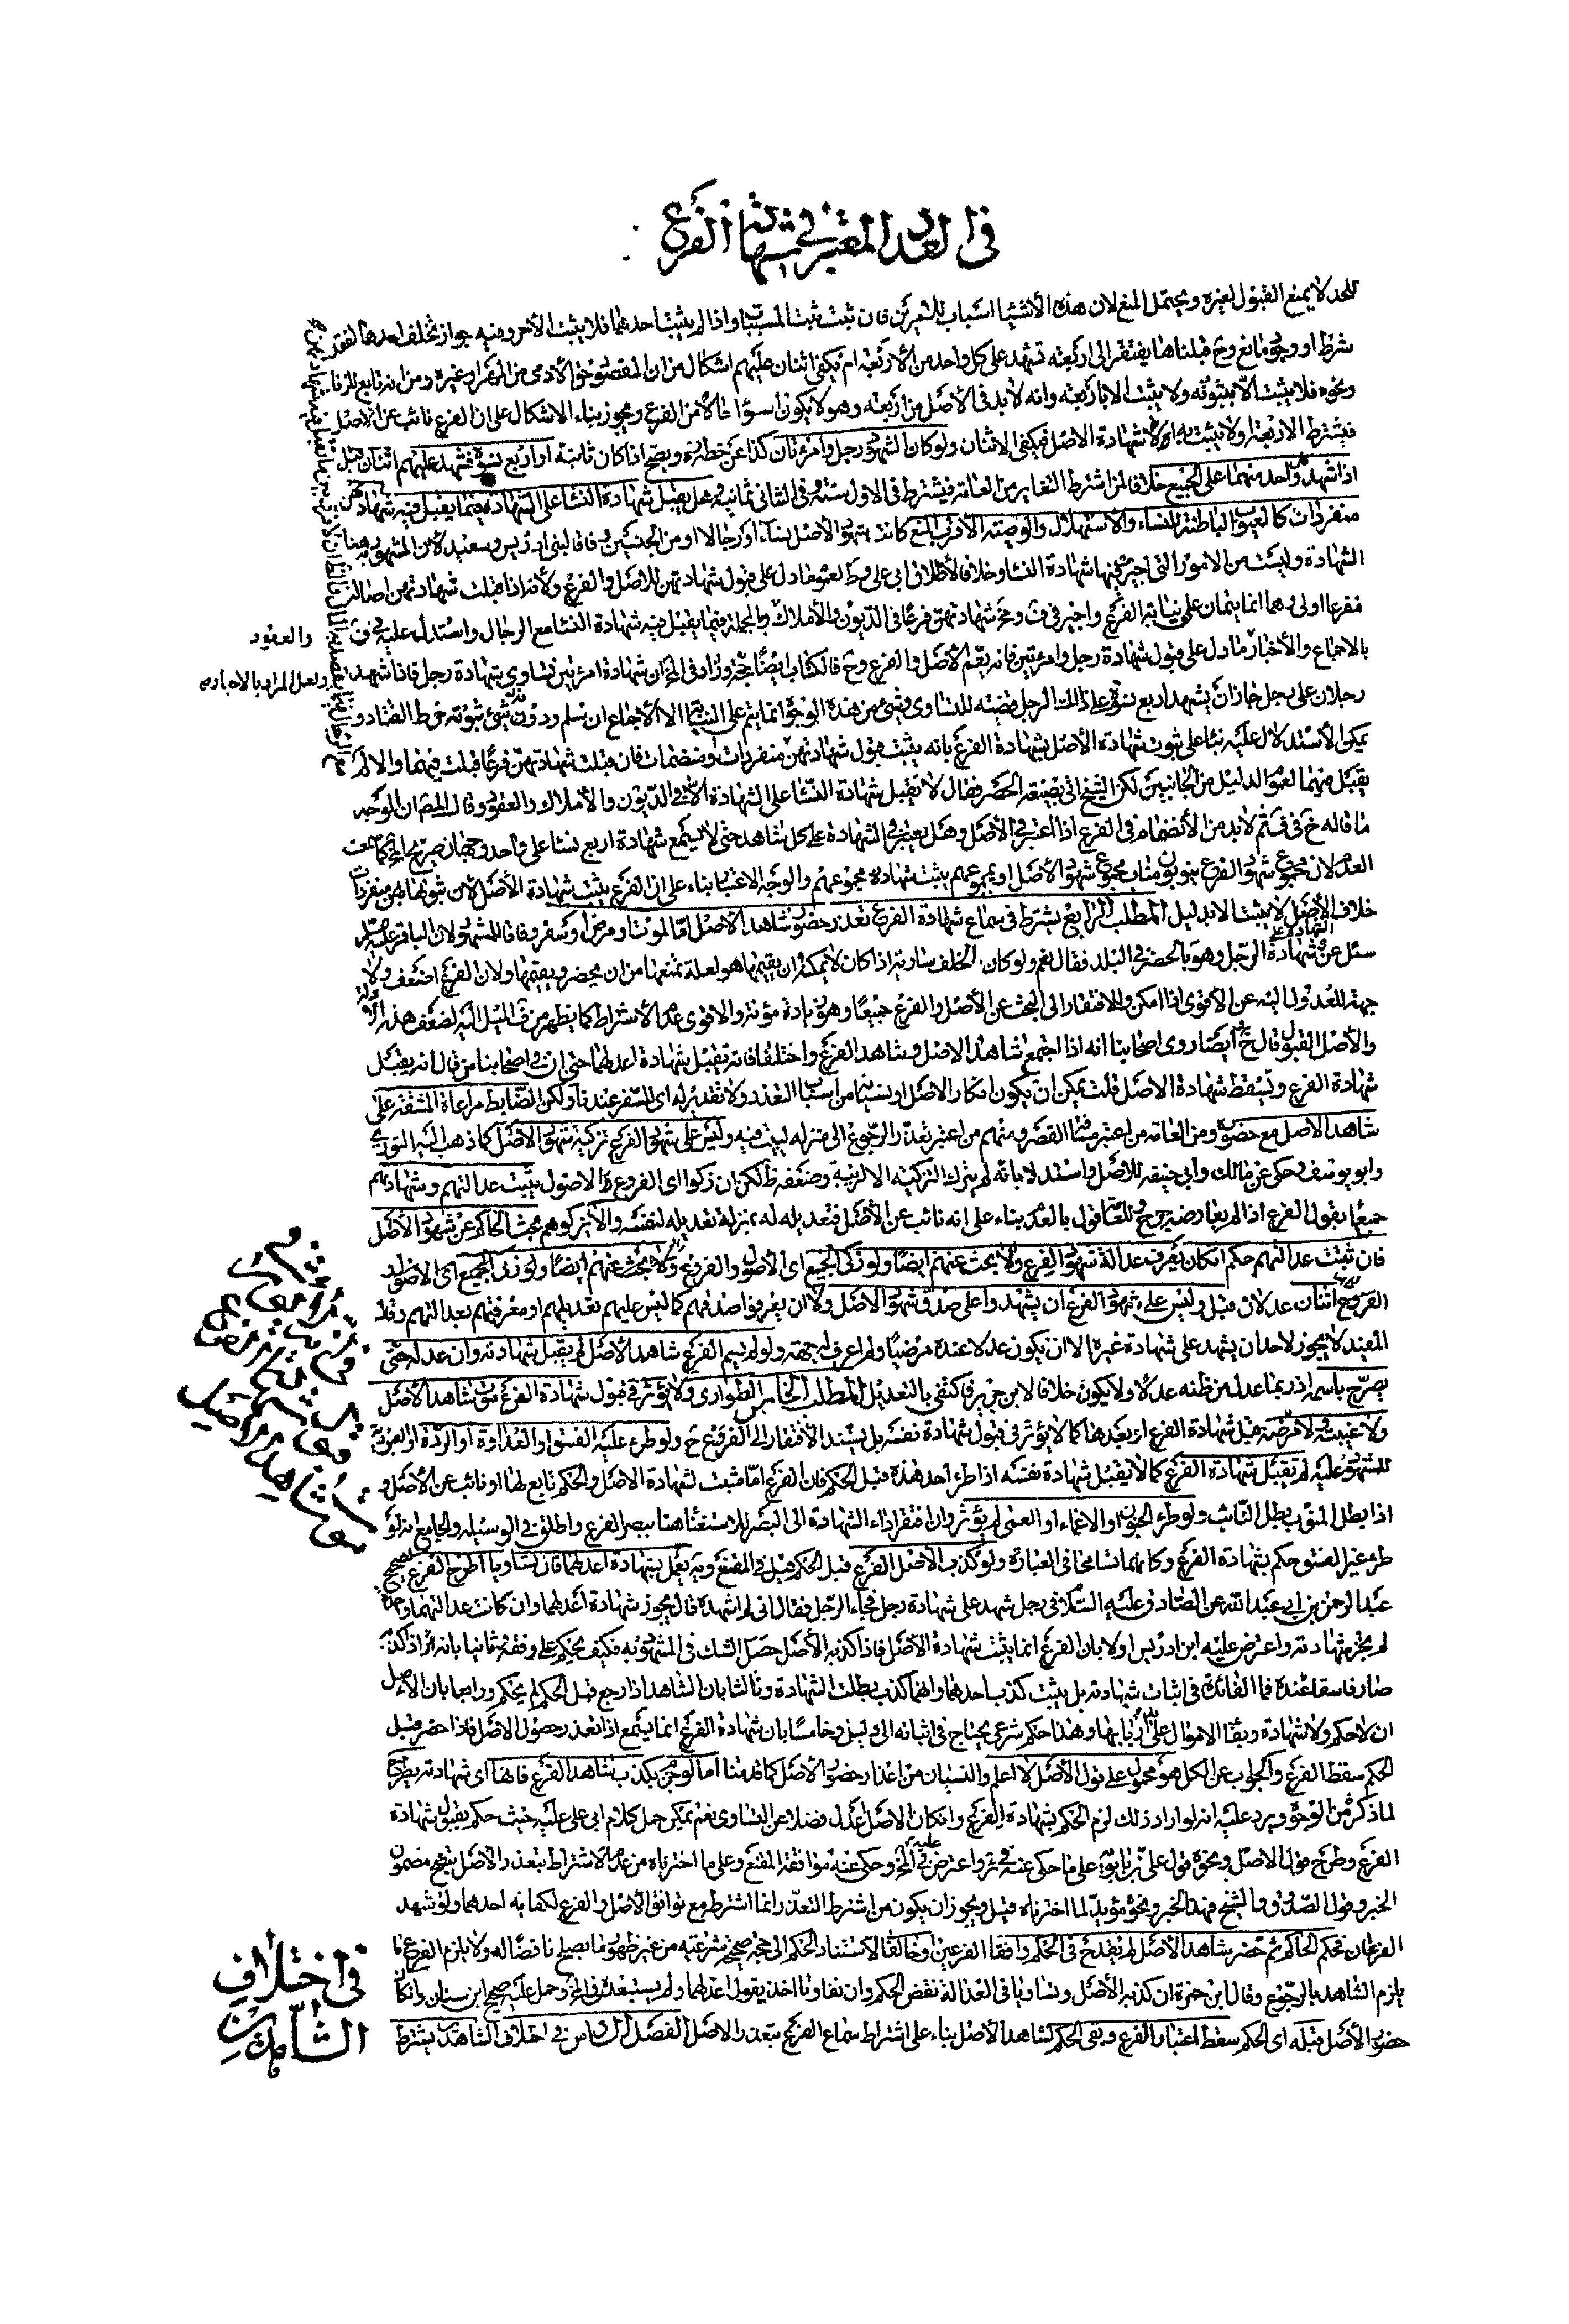 في العدد المعتبر في شهادة الفرع
للحد لا يمنع القبول لغيره ويحتمل المنع لان هذه الأشياء اسباب للامرين فان ثبت ثبت المسببات واذا لم يثبت احدهما فلا يثبت الآخر وفيه جواز تخلف احدهما لفقد
شرط او وجود مانع وح قبلناها يفتقر الى اربعة تشهد على كل واحد من الأربعة ام يكفي اثنان عليهم اشكال من ان المقصود حق الآدمي من المهر وغيره ومن انه تابع للزنا
ونحوه فلا يثبت الا بثبوته ولا يثبت الا باربعة وانه لا بد في الأصل من اربعة وهو لا يكون اسوأ حالا من الفرع ويجوز بناء الاشكال على ان الفرع نائب عن الاصل
فيشترط الاربعة او لا ويثبت به شهادة الاصل فيكفي الاثنان ولو كان الشهود رجل وامرءتان كذا عن خطه ره ويصح اذا كان تامة او اربع نسوة فشهد عليهم اثنان قبل
اذا شهد كل واحد منهما على الجميع خلافا لمن اشترط التغاير من العامة فيشترط في الاول ستة وفي الثاني ثمانية وهل يقبل شهادة النساء على الشهادة فيما يقبل فيه شهادتهن
منفردات كالعيوب الباطنة للنساء والاستهلال والوصية الأقرب المنع كانت شهود الأصل نساء او رجالا او من الجنسين وفاقا لبني ادريس وسعيد لان المشهود به هنا
الشهادة وليست من الامور التي اجيز فيها شهادة النساء وخلافا لإطلاق ابي علي وط لعموم ما دل على قبول شهادتهن للاصل والفرع ولأنه اذا قبلت شهادتهن اصالة
ففرعا اولى وهما انما يتمان على نيابة الفرع واجيز في ف وخ شهادتهن فرعا في الديون والأملاك والعقود وبالجملة فيما يقبل فيه شهادة النساء مع الرجال واستدل عليه في ف
بالاجماع والأخبار ولعل المراد بالاخبار ما دل على قبول شهادة رجل وامرءتين فانه يعم الأصل والفرع وح فالكتاب ايضا حجة وزاد في المخ ان شهادة امرءتين تساوي شهادة رجل فاذا شهد
رجلان على رجل جاز ان يشهد اربع نسوة على ذلك الرجل قضية للتساوي وشيء من هذه الوجوه انما يتم على النيابة الا الاجماع ان سلم ودون شيء ثبوته خرط القتاد و
يمكن الأستدلال عليه بناء على ثبوت شهادة الأصل بشهادة الفرع بانه يثبت قبول شهادتهن منفردات ومنضمات فان قبلت شهادتهن فرعا قبلت فيهما والا لم
يقبل فيهما لعموم الدليل من الجانبين لكن الشيخ اتى بصيغة الحصر فقال لا تقبل شهادة النساء على الشهادة الا في الديون والأملاك والعقود وقال المصنف ان الوجه
ما قاله خ في ف ثم لا بد من الأنضمام في الفرع اذا اعتبر في الأصل وهل يعتبر في الشهادة على كل شاهد حتى لا يسمع شهادة اربع نساء على واحد وجهان
العدم لان مجموع شهود الفرع ينوبون مناب مجموع شهود الأصل او بمجموعهم يثبت شهادة مجموعهم والوجه الاعتبار بناء على ان الفرع يثبت شهادة الأصل لأن ثبوتها بهن منفردات
خلاف الأصل لا يثبت الا بدليل المطلب الرابع يشترط في سماع شهادة الفرع تعذر حضور شاهد الاصل اما لموت او مرض او سفر وفاقا للمشهور لان الباقر عليه السلام
سئل عن الشهادة على شهادة الرجل وهو بالحضر في البلد فقال نعم ولو كان خلف سارية اذا كان لا يمكنه ان يقيمها هو لعلة تمنعه من ان يحضر ويقيمها ولان الفرع اضعف ولا
جهة للعدول اليه عن الأقوى اذا امكن والافتقار الى البحث عن الأصل والفرع جميعا وهو زيادة مؤنة والاقوى عدم الاشتراط كما يظهر من ف الميل اليه لضعف هذه الأدلة
والأصل القبول قال خ ره ايضا روى اصحابنا انه اذا اجتمع شاهد الاصل وشاهد الفرع واختلفا فانه تقبل شهادة اعدلهما حتى ان في اصحابنا من قال انه يقبل
شهادة الفرع وتسقط شهادة الاصل قلت يمكن ان يكون انكار الاصل او نسيانه من اسباب التعذر ولا تقدير له اي للسفر عندنا ولكن الضابط مراعاة المشقة على
شاهد الاصل مع حضوره ومن العامة من اعتبر مسافة القصر ومنهم من اعتبر تعذر الرجوع الى منزله ليبيت فيه وليس على شهود الفرع تزكية شهود الأصل كما ذهب اليه الثوري
وابو يوسف وحكى عن مالك وابي حنيفة للأصل واستدلا بانه لم يترك التزكية الا لريبة وضعفه ظ لكن ان زكوا اي الفروع الاصول يثبت عدالتهم وشهادتهم
جميعا بقول الفرع اذا لم يعارضه جرح وللعامة قول بالعدم بناء على انه نائب عن الأصل فتعديله له بمنزلة تعديله لنفسه والا يزكوهم بحث الحاكم عن شهود الأصل
فان ثبتت عدالتهم حكم ان كان يعرف عدالة شهود الفرع والا بحث عنهم ايضا ولو زكى الجميع اي الأصول والفروع والا بحث عنهم ايضا ولو زكى الجميع اي الاصول و
الفروع اثنان عدلان قبل وليس على شهود الفرع ان يشهدوا على صدق شهود الاصل ولا ان يعرفوا صدقهم كما ليس عليهم تعديلهم او معرفتهم بعدالتهم وقال
المفيد لا يجوز لاحد ان يشهد على شهادة غيره الا ان يكون عدلا عنده مرضيا ولم اعرف له جهة ولو لم يسم الفرع شاهد الأصل لم يقبل شهادته وان عدله حتى
يصرح باسمه اذ ربما عدل من ظنه عدلا ولا يكون خلافا لابن جرير فاكتفى بالتعديل المطلب الخامس في الطواري ولا يؤثر في قبول شهادة الفرع موت شاهد الأصل
ولا غيبته ولا مرضه قبل شهادة الفرع او بعدها كما لا يؤثر في قبول شهادة نفسه بل يستند الأفتقار الى الفرع ح ولو طرء عليه الفسق او العداوة او الردة او العبودية
للشهود عليه لم تقبل شهادة الفرع كما لا يقبل شهادة نفسه اذا طرء احد هذه قبل الحكم فان الفرع اما مثبت لشهادة الاصل والحكم تابع لها او نائب عن الأصل و
اذا بطل المنوب بطل النائب ولو طرء الجنون او الاغماء او العمى لم يؤثر وان افتقر اداء الشهادة الى البصر للاستغناء هنا ببصر الفرع واطلق في الوسيلة والجامع انه لو
طرء غير الفسق حكم بشهادة الفرع وكانهما تسامحا في العبارة ولو كذب الأصل الفرع قبل الحكم قيل في المقنع ويه يعمل بشهادة اعدلهما فان تساويا اطرح الفرع لصحيح
عبد الرحمن بن ابي عبد الله عن الصادق عليه السلام في رجل شهد على شهادة رجل فجاء الرجل فقال اني لم اشهده قال يجوز شهادة اعدلهما وان كانت عدالتهما واحدة
لم يجز شهادته واعترض عليه ابن ادريس اولا بان الفرع انما يثبت شهادة الأصل فاذا كذبه الأصل حصل الشك في المشهود به فكيف يحكم على وفقه وثانيا بانه اذا كذبه
صار فاسقا عنده فما الفائدة في اثبات شهادته بل يثبت كذب احدهما وايهما كذب بطلت الشهادة وثالثا بان الشاهد اذا رجع قبل الحكم لم يحكم ورابعا بان الأصل
ان لا حكم ولا شهادة وبقاء الاموال على اربابها وهذا حكم شرعي يحتاج في اثباته الى دليل وخامسا بان شهادة الفرع انما يسمع اذا تعذر حضور الاصل فاذا حضر قبل
الحكم سقط الفرع والجواب عن الكل هو محمول على قول الأصل لا اعلم والنسيان من اعذار حضور الأصل كما قدمنا اما لو جزم بكذب شاهد الفرع فانها اي شهادته يطرح
لما ذكر من الوجوه ويرد عليه انه لو اراد ذلك لزم الحكم بشهادة الفرع وان كان الاصل اعدل فضلا عن التساوي نعم يمكن حمل كلام ابي علي عليه حيث حكم بقبول شهادة
الفرع وطرح قول الاصل وبنحوه قول علي بن بابويه على ما حكى عنه في ئر واعترض عليه في المخ وحكى عنه موافقة المقنع وعلى ما اخترناه من عدم الاشتراط بتعذر الأصل يتضح مضمون
الخبر وقول الصدوقين والشيخ فهذا الخبر ونحوه مؤيد لما اخترناه قيل ويجوز ان يكون من اشترط التعذر انما اشترطه مع توافق الأصل والفرع لكفاية احدهما ولو شهد
الفرعان فحكم الحاكم ثم حضر شاهد الأصل لم يقدح في الحكم وافقا الفرعين او خالفا لاستناد الحكم الى حجة صحيحة شرعية من غير ظهور ما يصلح ناقضا له ولا يلزم الفرع ما
يلزم الشاهد بالرجوع وقال ابن حمزة ان كذبه الأصل وتساويا في العدالة نقض الحكم وان تفاوتا اخذ بقول اعدلهما ولم يستبعده في المخ وحمل عليه صحيح ابن سنان وان كان
حضور الأصل قبله اي الحكم سقط اعتبار الفرع وبقي الحكم لشاهد الاصل بناء على اشتراط سماع الفرع بتعذر الاصل الفصل السادس في اختلاف الشاهدين يشترط
في اختلاف
الشاهدين